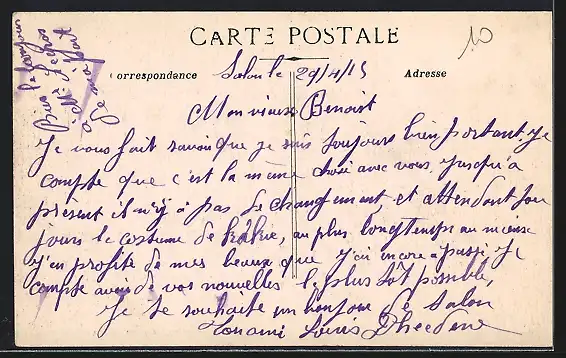 CARTE POSTALE
10
Correspondance
Adresse
Salon le 29/4/15
Mon vieux Benoist
Je vous fait savoir que je suis toujours bien portant. Je
compte que c'est la même chose avec vous. Jusqu'à
présent il n'y à pas de changement et attendant tou
jours le costume de au plus longtemps au mieux
J'en profite de mes beaux que j'ai encore a passé. Je
compte avoir de vos nouvelles le plus tôt possible,
Je te souhaite un bonjour de Salon
Ton ami Louis
Bien le bonjour
a Mr
de ma part